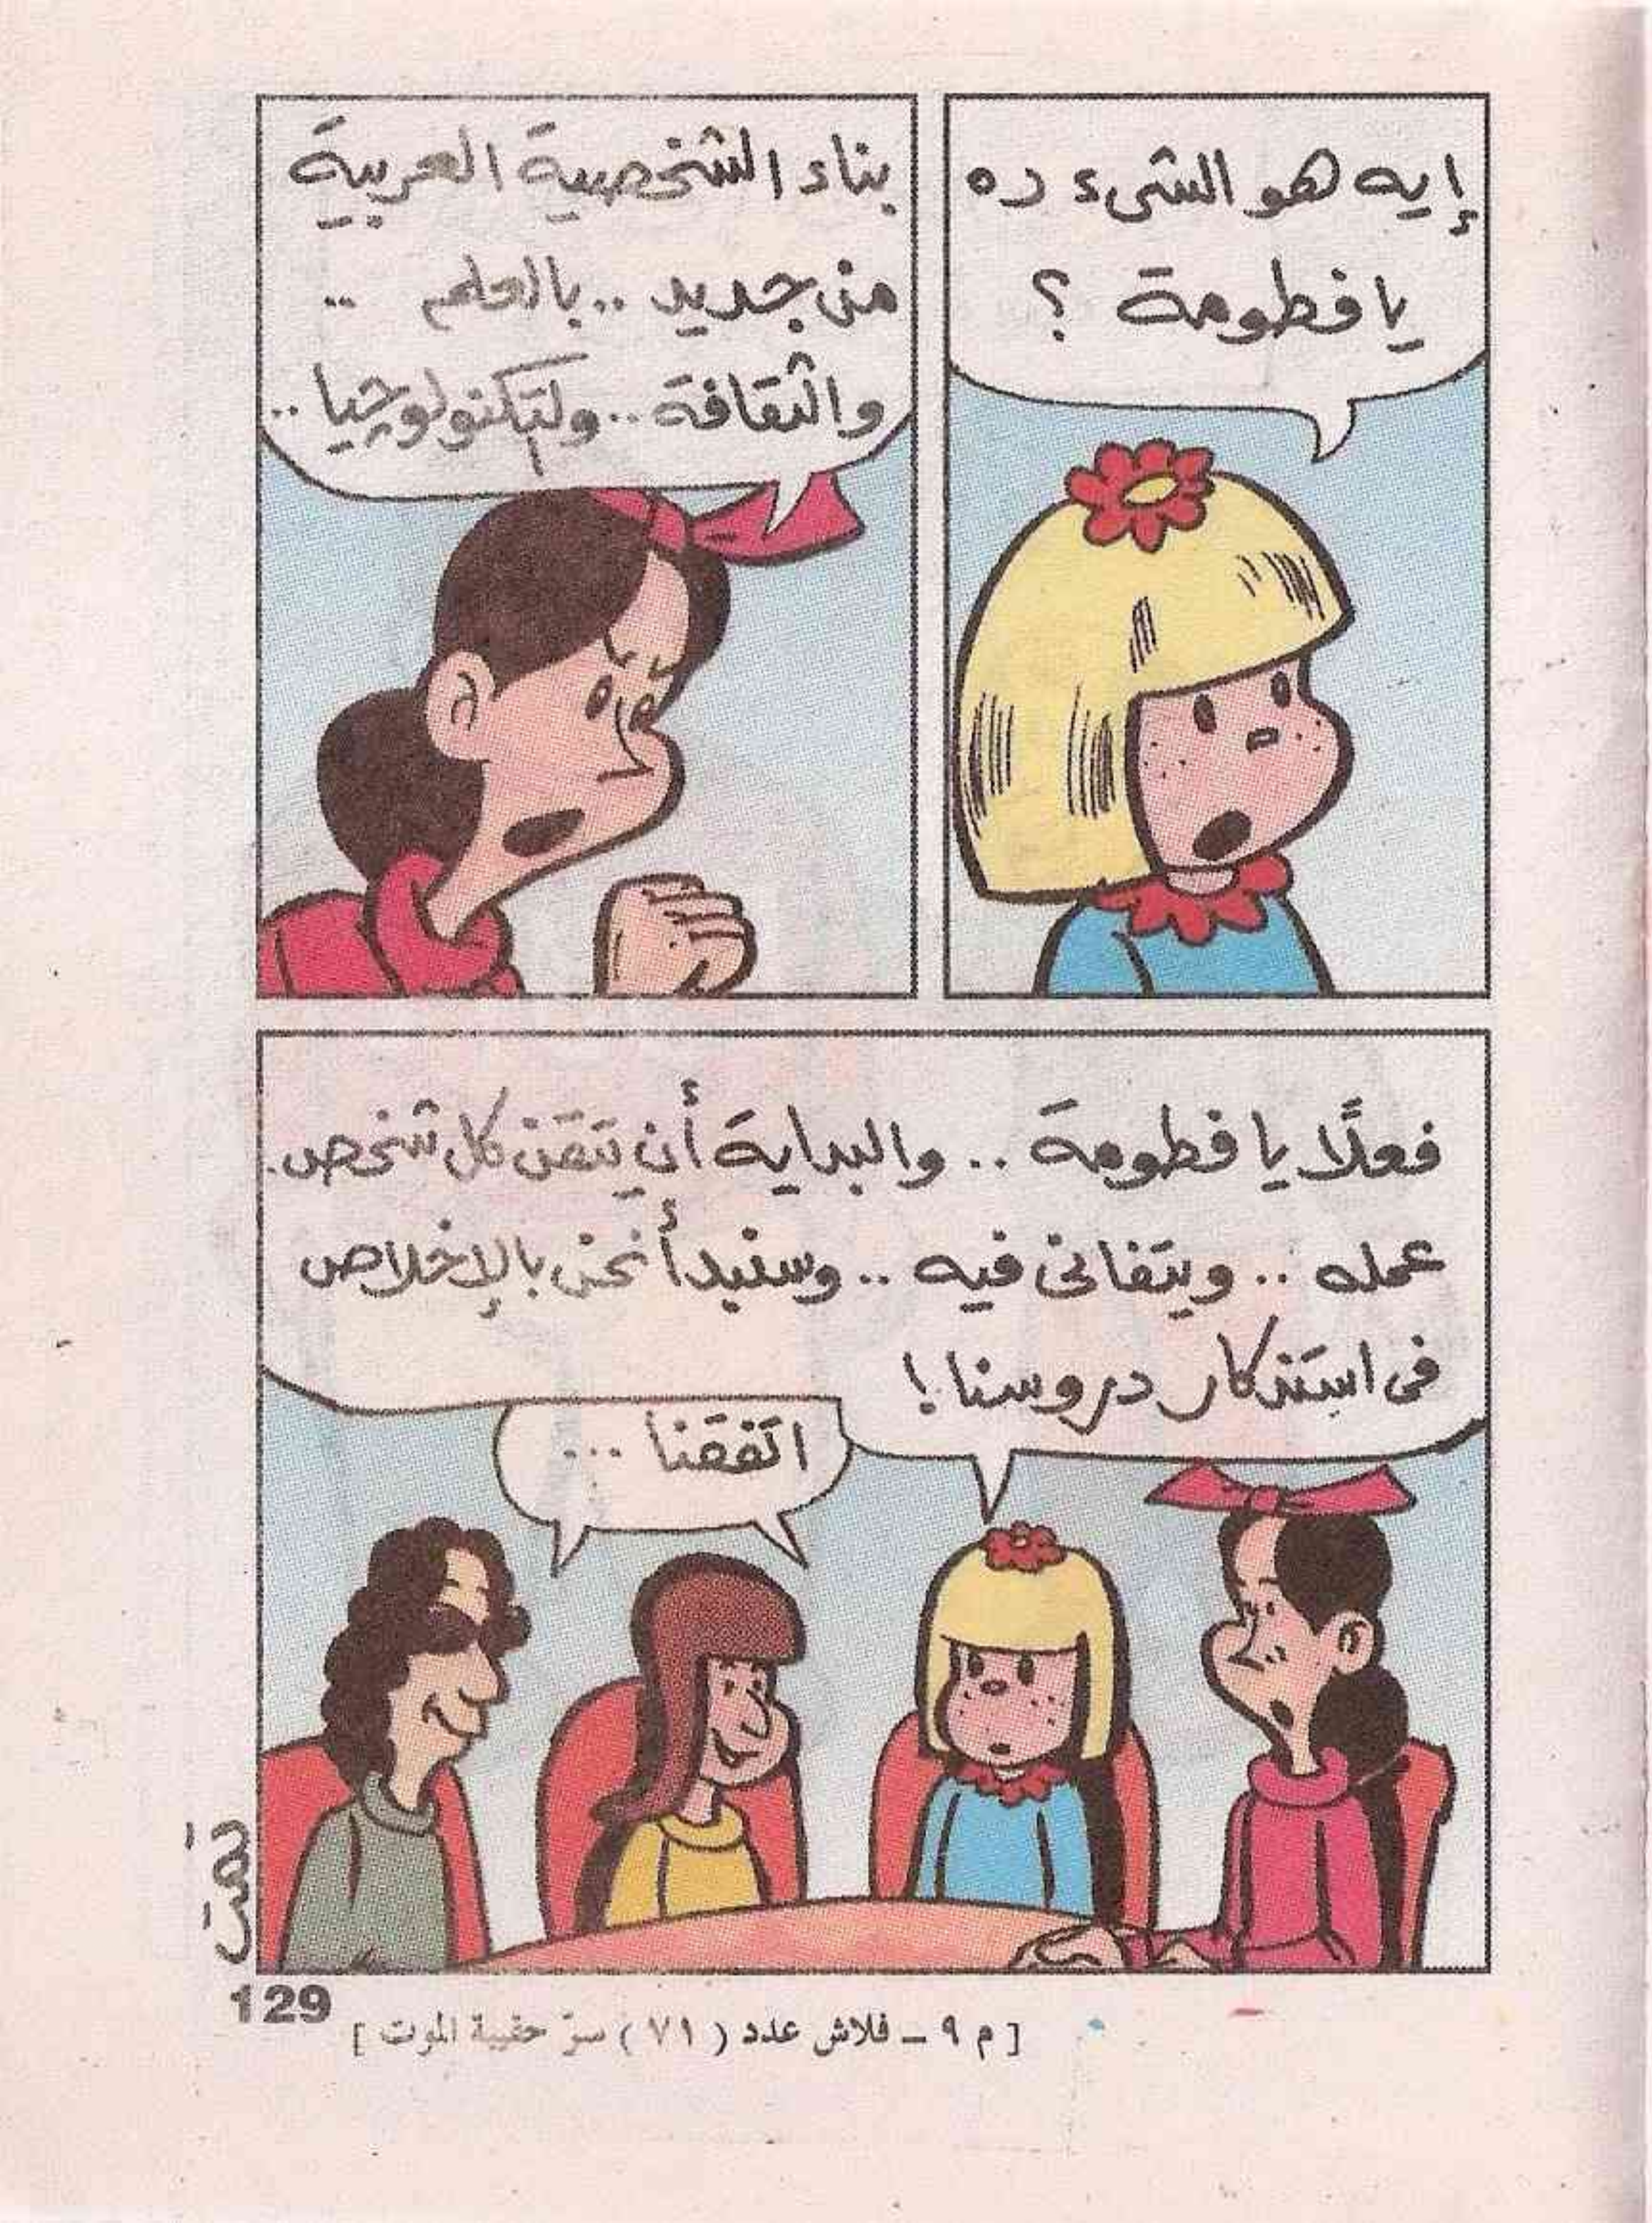 إيه هو الشىء ده
يا فطومة ؟
بناء الشخصية العربية
من جديد .. بالعلم ..
والثقافة .. ولتكنولوچيا ..
فعلًا يا فطومة .. والبداية أن يتقن كل شخص
عمله .. ويتفانى فيه .. وسنبدأ نحن بالإخلاص
فى استذكار دروسنا !
اتفقنا ...
تمت
129
[ م ٩ ـ فلاش عدد ( ٧١ ) سرّ حقيبة الموت ]